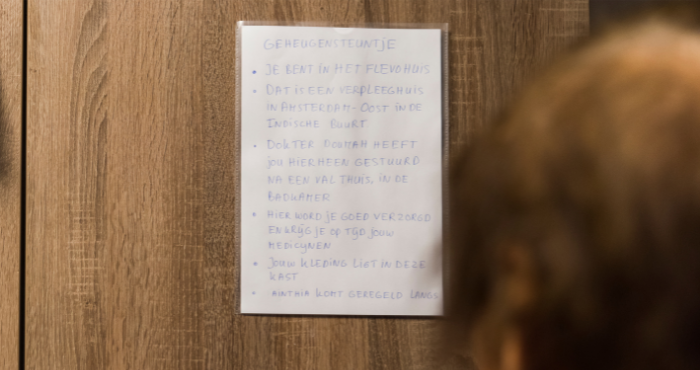 GEHEUGENSTEUNTJE
• JE BENT IN HET FLEVOHUIS
• DAT IS EEN VERPLEEGHUIS
IN AMSTERDAM-OOST IN DE
INDISCHE BUURT
• DOKTER HEEFT
JOU HIERHEEN GESTUURD
NA EEN VAL THUIS, IN DE
BADKAMER
• HIER WORD JE GOED VERZORGD
EN KRIJG JE OP TIJD JOUW
MEDICYNEN
• JOUW KLEDING LIGT IN DEZE
KAST
• KOMT GEREGELD LANGS